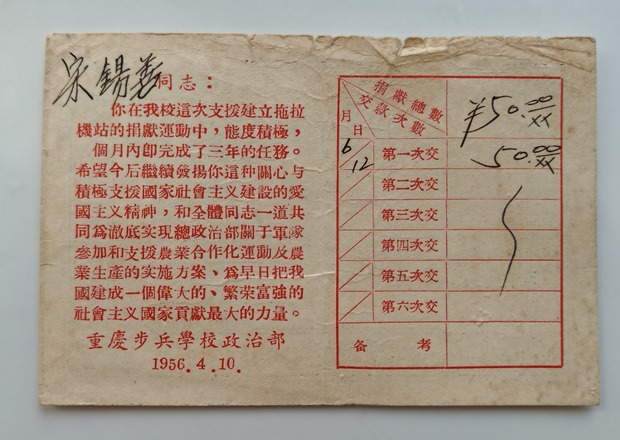 宋錫善同志：
你在我校這次支援建立拖拉
機站的捐獻運動中，態度積極，
個月內卽完成了三年的任務。
希望今后繼續發揚你這种關心与
積極支援國家社會主义建設的愛
國主义精神，和全體同志一道共
同爲澈底实現總政治部關于軍隊
參加和支援農業合作化運动及農
業生產的实施方案、爲早日把我
國建成一個偉大的、繁荣富強的
社會主义國家貢獻最大的力量。
重慶步兵學校政治部
1956.4.10.
捐獻總數
交款次數
月日
¥50.00/xx
6/12 第一次交 50.00/xx
第二次交
第三次交
第四次交
第五次交
第六次交
备考